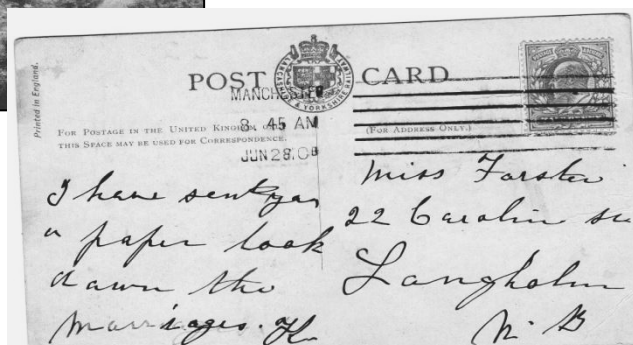 Printed in England.
POST CARD
& YORKSHIRE
MANCHESTER
8 45 AM
JUN 28.0
FOR POSTAGE IN THE UNITED KINGDOM ONLY
THIS SPACE MAY BE USED FOR CORRESPONDENCE.
(FOR ADDRESS ONLY.)
I have sent you
a paper look
down the
marriages.
Miss Forster
22 Carolin
Langholm
N. B